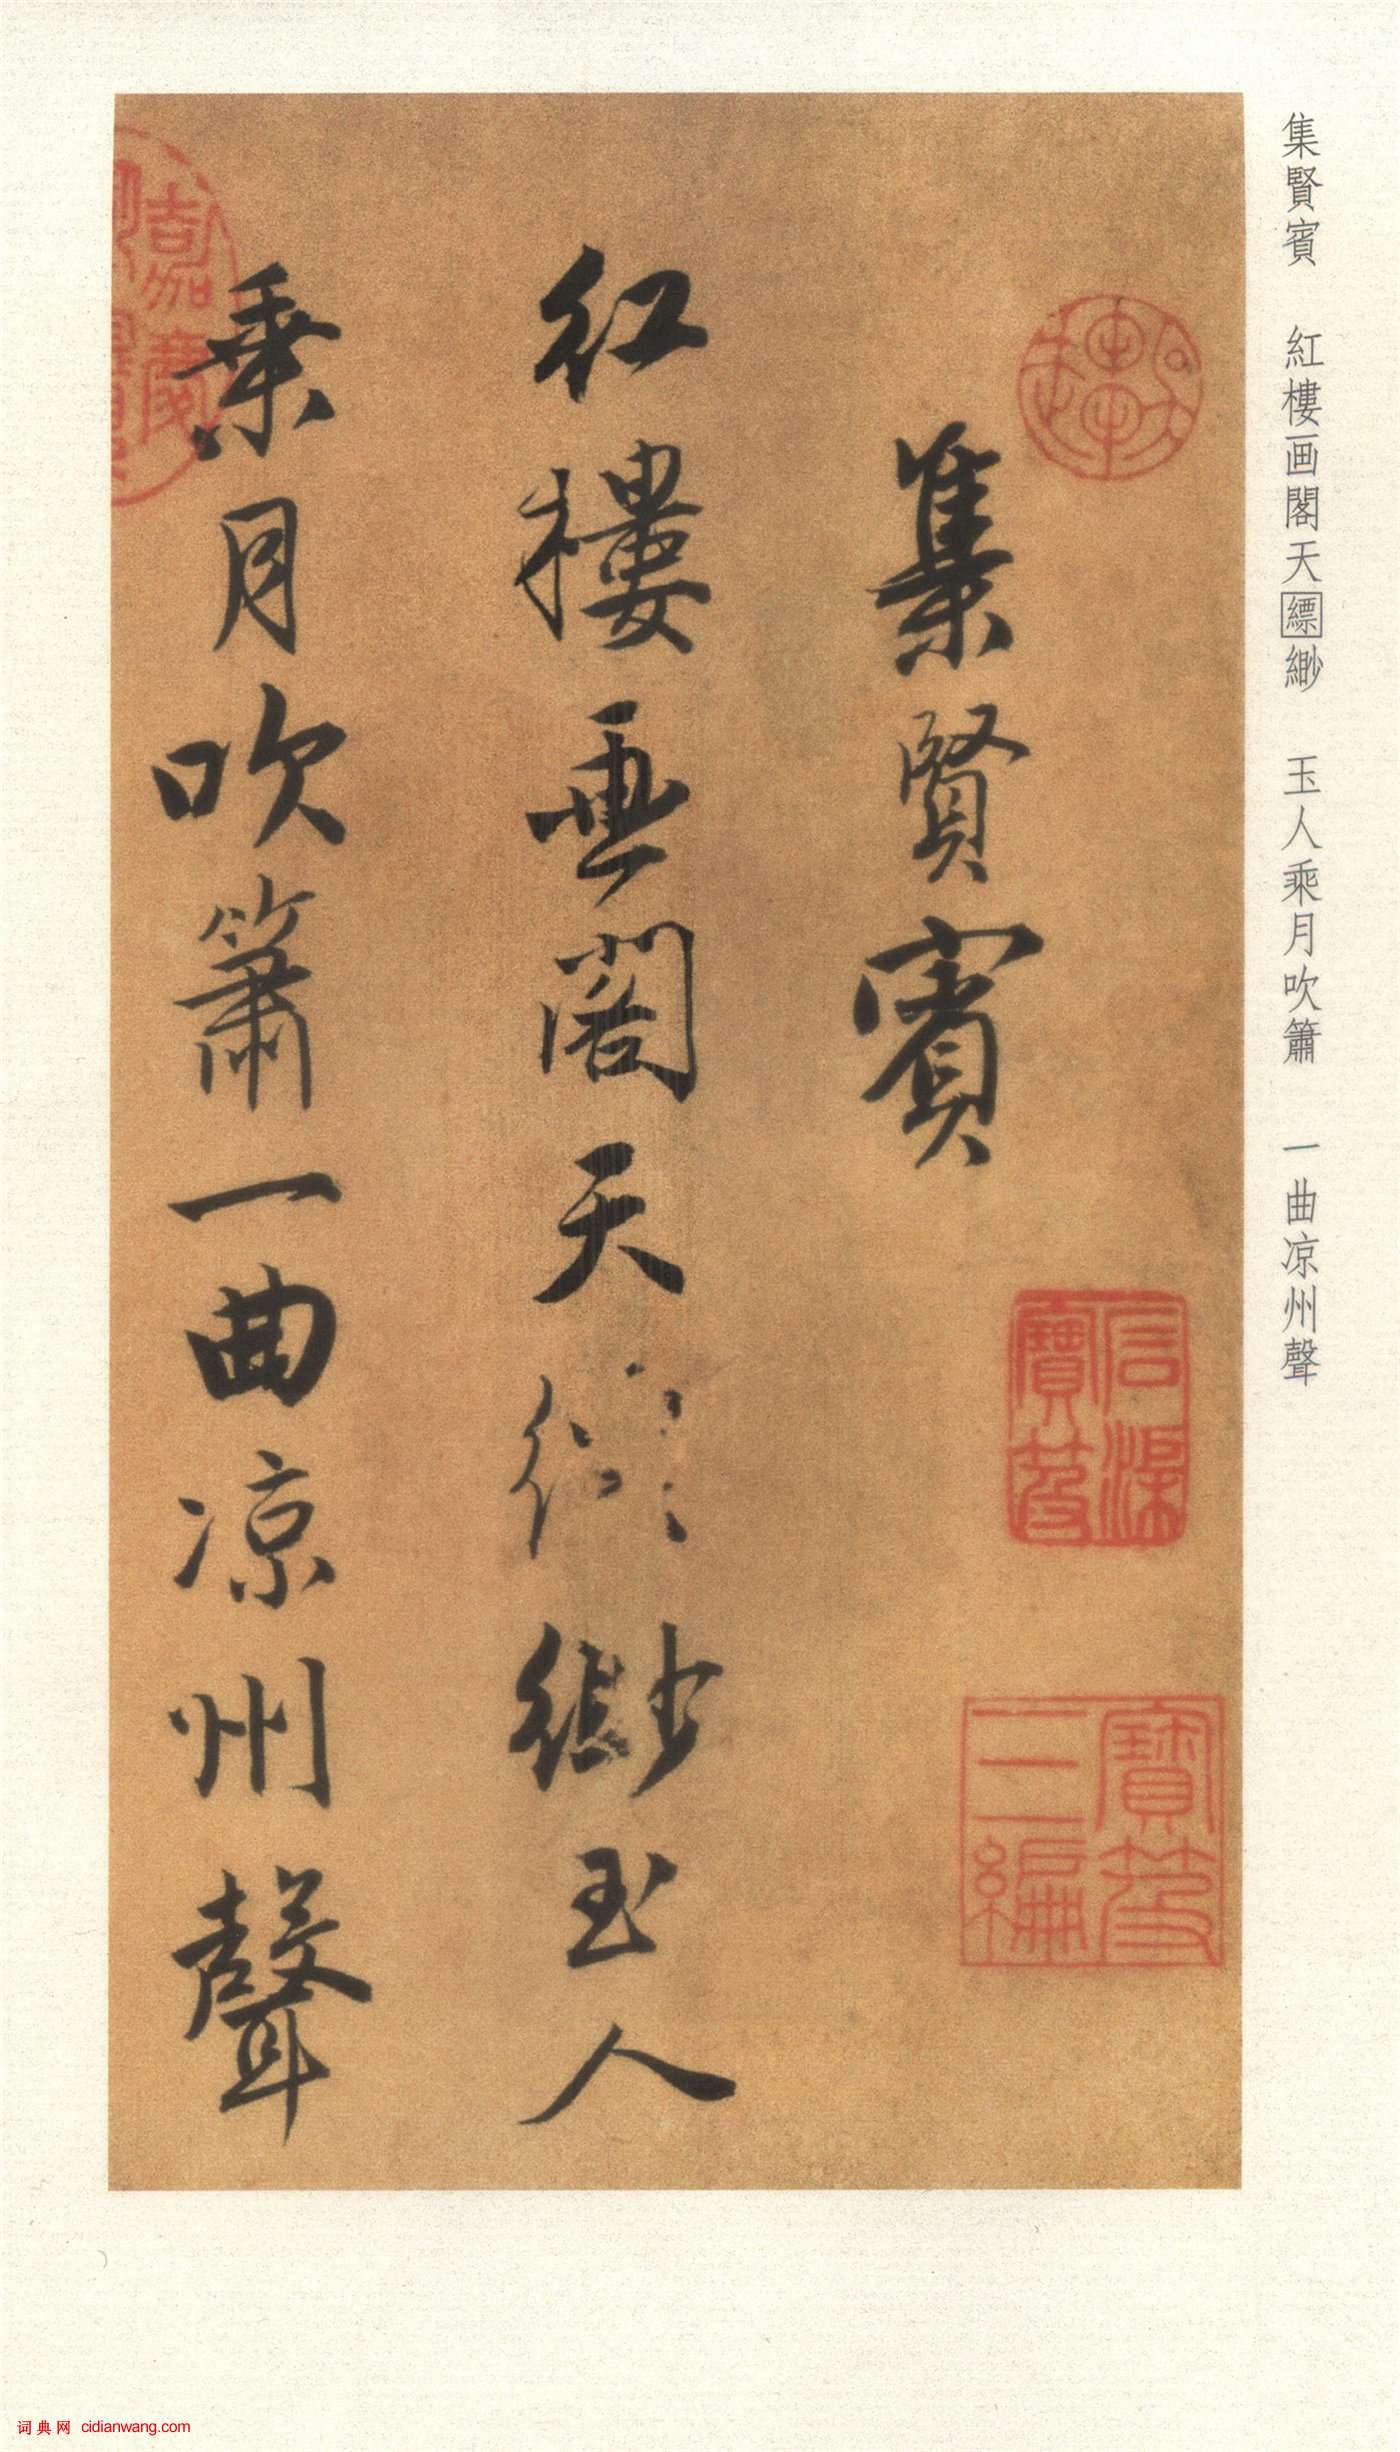 集賢賓　紅樓画閣天縹緲　玉人乘月吹簫　一曲凉州聲
集賢賓
紅樓畫閣天縹緲玉人
乘月吹簫一曲凉州聲
寶笈
三編
嘉慶
词典网 cidianwang.com